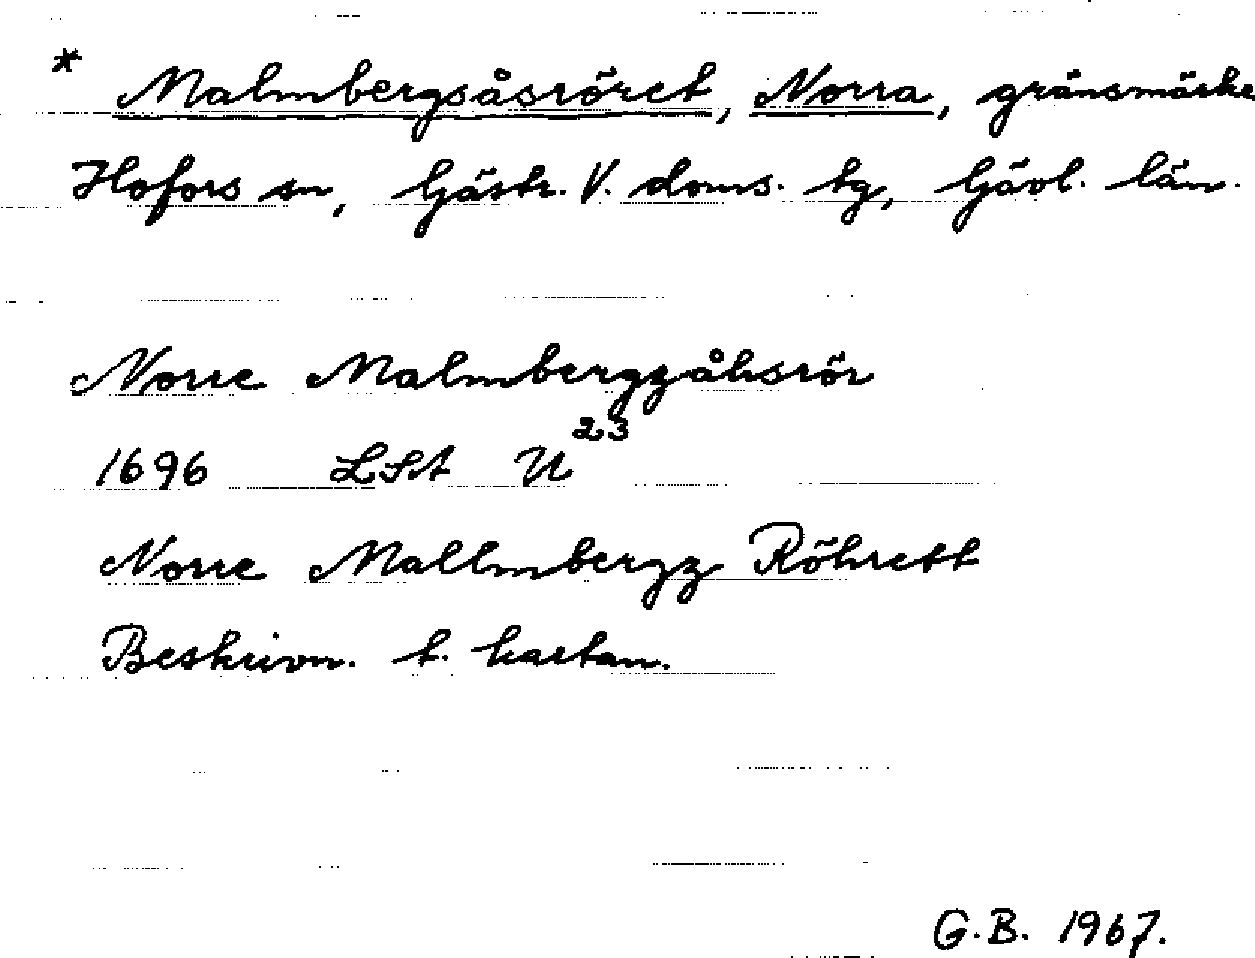 * Malmbergsåsröret, Norra, gränsmärke
Hofors sn, Gästr. V. doms. tg, Gävl. län.
Norre Malmbergzåhsrör
1696 LSt U23
Norre Mallmbergz Röhrett
Beskrivn. t. kartan.
G.B. 1967.